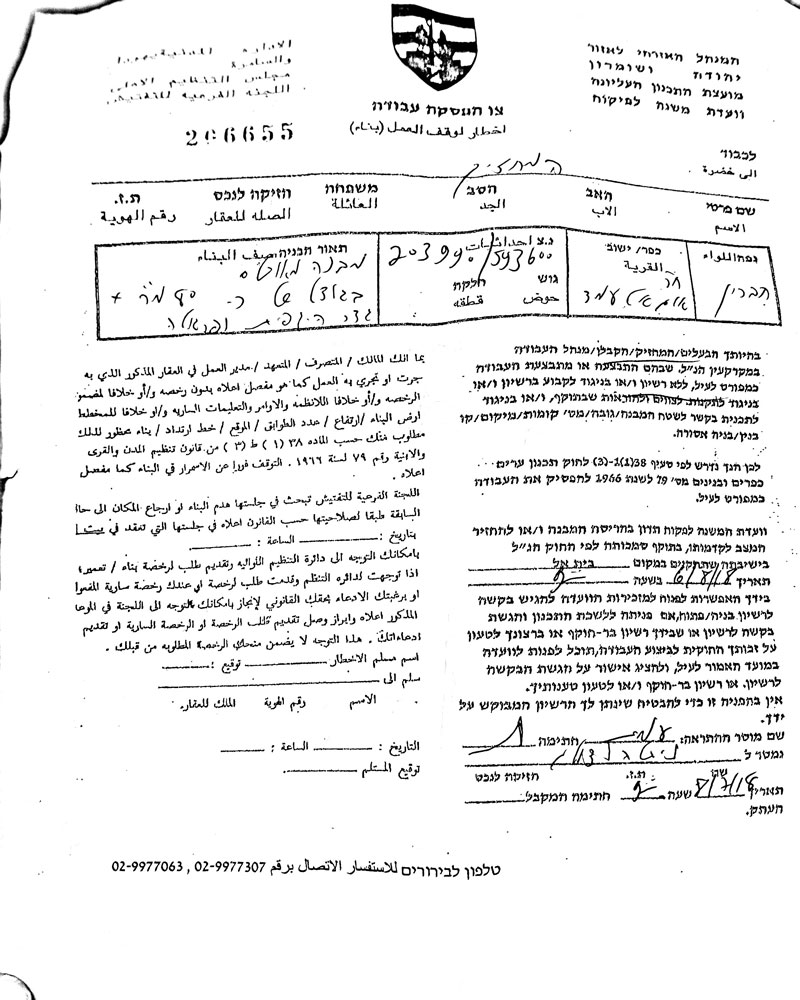 המנהל האזרחי לאזור
יהודה ושומרון
מועצת התכנון העליונה
וועדת משנה לפיקוח
والسامرة
مجلس التنظيم الاعلى
اللجنة الفرعية للتفتيش
צו הפסקת עבודה
اخطار لوقف العمل (بناء)
206655
לכבוד
الى حضرة
המחזיק
שם פרטי האב הסב משפחה חזיקה לנכס ת.ז.
الاسم الاب الجد العائلة الصله للعقار رقم الهوية
נפה/לווא כפר/ישוב נ.צ احداثيات תאור הבניה وصف البناء
القرية
חברון
203990/593600
גוש חלקה
حوض قطعه
בהיותך הבעלים/המחזיק/הקבלן/מנהל העבודה
במקרקעין הנ"ל, שבהם התבצעה או מתבצעת העבודה
כמפורט לעיל, ללא רשיון ו/או בניגוד לקבוע ברשיון ו/או
בניגוד לתקנות לצווים ולהוראות שבתוקף, ו/או בניגוד
לתכנית בקשר לשטח המבנה/גובה/מס' קומות/מיקום/קו
בנין/בניה אסורה.
לכן הנך נדרש לפי סעיף 38(1)-(3) לחוק תכנון ערים
כפרים ובנינים מס' 79 לשנת 1966 להפסיק את העבודה
כמפורט לעיל.
וועדת המשנה לפקוח תדון בהריסת המבנה ו/או להחזיר
המצב לקדמותו, בתוקף סמכותה לפי החוק הנ"ל
בישיבתה שתתקיים במקום בית אל
תאריך 6/8/18 בשעה 9
בידך האפשרות לפנות למזכירות הוועדה להגיש בקשה
לרשיון בניה/פתוח, אם פניתה ללשכת התכנון והגשת
בקשה לרשיון או שבידך רשיון בר-תוקף או ברצונך לטעון
על זכותך החוקית לביצוע העבודה, תוכל לפנות לוועדה
במועד האמור לעיל, ולהציג אישור על הגשת הבקשה
לרשיון. או רשיון בר-תוקף ו/או לטעון טענותיך.
אין בהפניה זו כדי להבטיח שינתן לך הרשיון המבוקש על
ידך.
שם מוסר ההתראה: חתימה
נמסר ל
שם ת.ז. חזיקה לנכס
תאריך 8/7/18 שעה 9 חתימה המקבל
העתק.
بما انك المالك / المتصرف / المتعهد / مدير العمل في العقار المذكور الذي به
جرت او تجري به العمل كما هو مفصل اعلاه بدون رخصه و/أو خلافا لمضمون
الرخصه و/أو خلافا للانظمه والاوامر والتعليمات الساريه و/او خلافا للمخطط
ارض البناء /ارتفاع / عدد الطوابق / الموقع / خط ارتداد / بناء محظور لذلك
مطلوب منك حسب الماده ٣٨ (١) ط (٣) من قانون تنظيم المدن والقرى
والابنية رقم ٧٩ لسنة ١٩٦٦ . التوقف فورا عن الاسمرار في البناء كما مفصل
اعلاه .
اللجنة الفرعية للتفتيش تبحث في جلستها هدم البناء او ارجاع المكان الى حالته
السابقة طبقا لصلاحيتها حسب القانون اعلاه في جلستها التي تنعقد في
بتاريخ: الساعة :
بامكانك التوجه الى دائرة التنظيم اللوائيه وتقديم طلب لرخصة بناء / تعمير؛
اذا توجهت لدائره التنظم وقدمت طلب لرخصة او عندك رخصة سارية المفعول
او برغبتك الادعاء بحقك القانوني لإنجاز بامكانك التوجه الى اللجنة في الموعد
المذكور اعلاه وابراز وصل تقديم طلب الرخصة او الرخصة السارية او تقديم
ادعاءاتك . هذا التوجه لا يضمن منحك الرخصة المطلوبه من قبلك .
اسم مسلم الاخطار توقيع :
سلم الى
الاسم رقم الهوية الملك للعقار.
التاريخ : الساعة :
توقيع المستلم
טלפון לבירורים للاستفسار الاتصال برقم 02-9977307 , 02-9977063